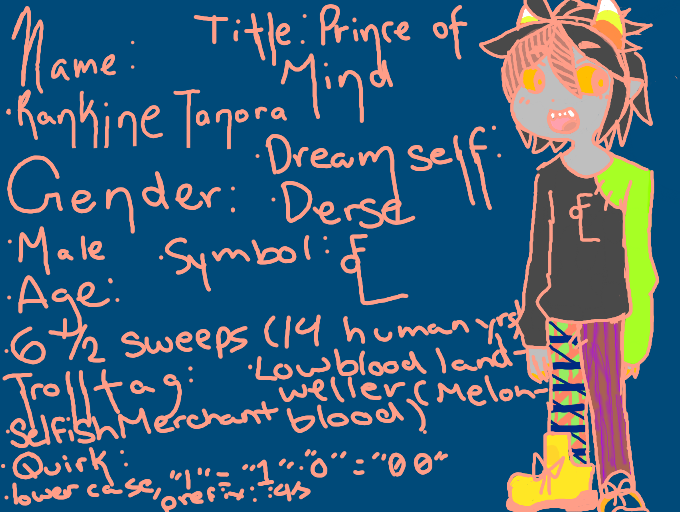 Name:
·Rankine Tanora
Title: Prince of
Mind
Gender:
·Male
·Dream self:
·Derse
·Symbol:
Age:
·6 1/2 sweeps (14 human yrs)
Trolltag:
SelfishMerchant
·Lowblood land-
weller (Melon-
blood)
·Quirk:
·lowercase, "l"="1" "o"="00"
prefix: